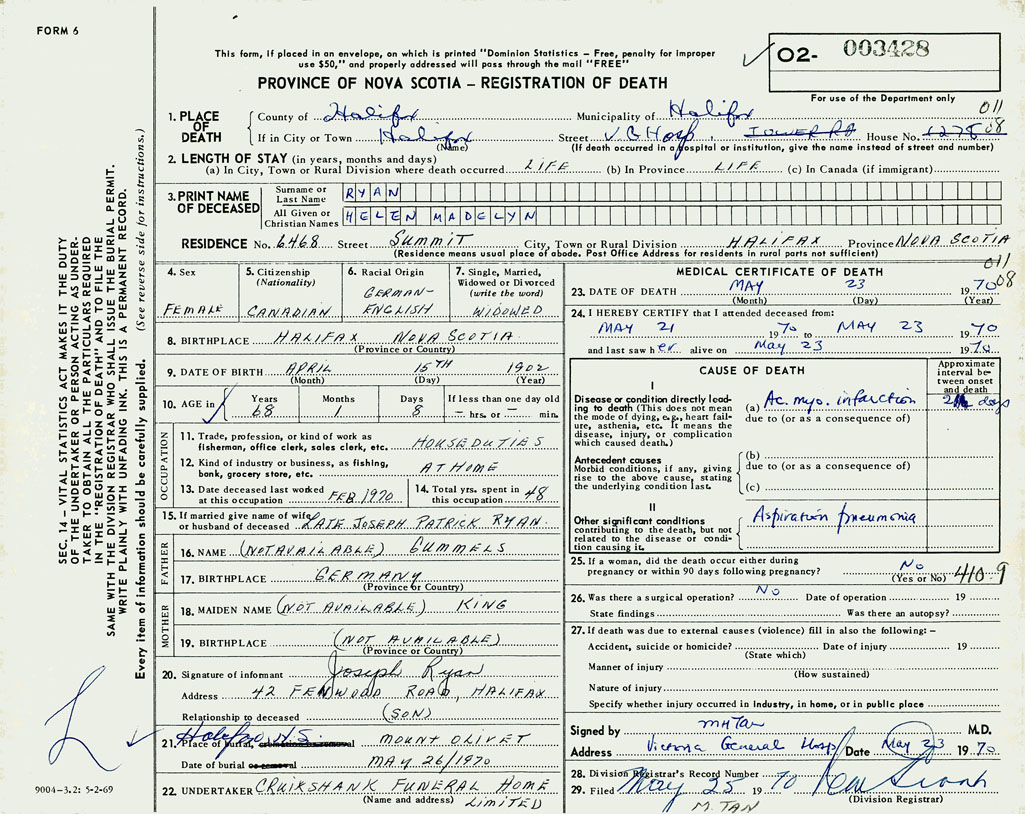 FORM 6
This form, if placed in an envelope, on which is printed "Dominion Statistics – Free, penalty for improper
use $50," and properly addressed will pass through the mail "FREE"
PROVINCE OF NOVA SCOTIA – REGISTRATION OF DEATH
O2- 003428
For use of the Department only
011
08
1. PLACE OF DEATH
County of Halifax Municipality of Halifax
If in City or Town Halifax Street V.G Hosp, TOWER RD House No. 1278
(Name) (If death occurred in a hospital or institution, give the name instead of street and number)
2. LENGTH OF STAY (in years, months and days)
(a) In City, Town or Rural Division where death occurred LIFE (b) In Province LIFE (c) In Canada (if immigrant)
3. PRINT NAME OF DECEASED
Surname or Last Name RYAN
All Given or Christian Names HELEN MADELYN
RESIDENCE No. 6468 Street SUMMIT City, Town or Rural Division HALIFAX Province NOVA SCOTIA
(Residence means usual place of abode. Post Office Address for residents in rural parts not sufficient)
011
08
4. Sex
FEMALE
5. Citizenship
(Nationality)
CANADIAN
6. Racial Origin
GERMAN-
ENGLISH
7. Single, Married,
Widowed or Divorced
(write the word)
WIDOWED
8. BIRTHPLACE HALIFAX NOVA SCOTIA
(Province or Country)
9. DATE OF BIRTH APRIL 15TH 1902
(Month) (Day) (Year)
10. AGE in
Years Months Days If less than one day old
68 1 8 — hrs. or — min.
OCCUPATION
11. Trade, profession, or kind of work as
fisherman, office clerk, sales clerk, etc. HOUSEDUTIES
12. Kind of industry or business, as fishing,
bank, grocery store, etc. AT HOME
13. Date deceased last worked
at this occupation FEB 1970
14. Total yrs. spent in
this occupation 48
15. If married give name of wife
or husband of deceased LATE JOSEPH PATRICK RYAN
FATHER
16. NAME (NOT AVAILABLE) GUMMELS
17. BIRTHPLACE GERMANY
(Province or Country)
MOTHER
18. MAIDEN NAME (NOT AVAILABLE) KING
19. BIRTHPLACE (NOT AVAILABLE)
(Province or Country)
20. Signature of informant Joseph Ryan
Address 42 FENWOOD ROAD, HALIFAX
Relationship to deceased (SON)
Halifax, N.S.
21. Place of burial, cremation or removal MOUNT OLIVET
Date of burial or removal MAY 26/1970
22. UNDERTAKER CRUIKSHANK FUNERAL HOME
(Name and address) LIMITED
MEDICAL CERTIFICATE OF DEATH
23. DATE OF DEATH MAY 23 1970
(Month) (Day) (Year)
24. I HEREBY CERTIFY that I attended deceased from:
MAY 21 1970 to MAY 23 1970
and last saw her alive on May 23 1970
CAUSE OF DEATH
Approximate
interval be-
tween onset
and death
I
Disease or condition directly lead-
ing to death (This does not mean
the mode of dying, e.g., heart fail-
ure, asthenia, etc. It means the
disease, injury, or complication
which caused death.)
(a) Ac. myo. infarction days
due to (or as a consequence of)
Antecedent causes
Morbid conditions, if any, giving
rise to the above cause, stating
the underlying condition last.
(b)
due to (or as a consequence of)
(c)
II
Other significant conditions
contributing to the death, but not
related to the disease or condi-
tion causing it.
Aspiration pneumonia
25. If a woman, did the death occur either during
pregnancy or within 90 days following pregnancy? No
(Yes or No) 410.9
26. Was there a surgical operation? No Date of operation 19
State findings Was there an autopsy?
27. If death was due to external causes (violence) fill in also the following: –
Accident, suicide or homicide? Date of injury 19
(State which)
Manner of injury
(How sustained)
Nature of injury
Specify whether injury occurred in industry, in home, or in public place
Signed by MH Tan M.D.
Address Victoria General Hosp Date May 23 1970
28. Division Registrar's Record Number
29. Filed May 25 1970
(Division Registrar)
M. TAN
SEC. 14 – VITAL STATISTICS ACT MAKES IT THE DUTY
OF THE UNDERTAKER OR PERSON ACTING AS UNDER-
TAKER TO OBTAIN ALL THE PARTICULARS REQUIRED
IN THE "REGISTRATION OF DEATH" AND TO FILE THE
SAME WITH THE DIVISION REGISTRAR WHO SHALL ISSUE THE BURIAL PERMIT.
WRITE PLAINLY WITH UNFADING INK. THIS IS A PERMANENT RECORD.
Every item of information should be carefully supplied. (See reverse side for instructions.)
9004-3.2: 5-2-69